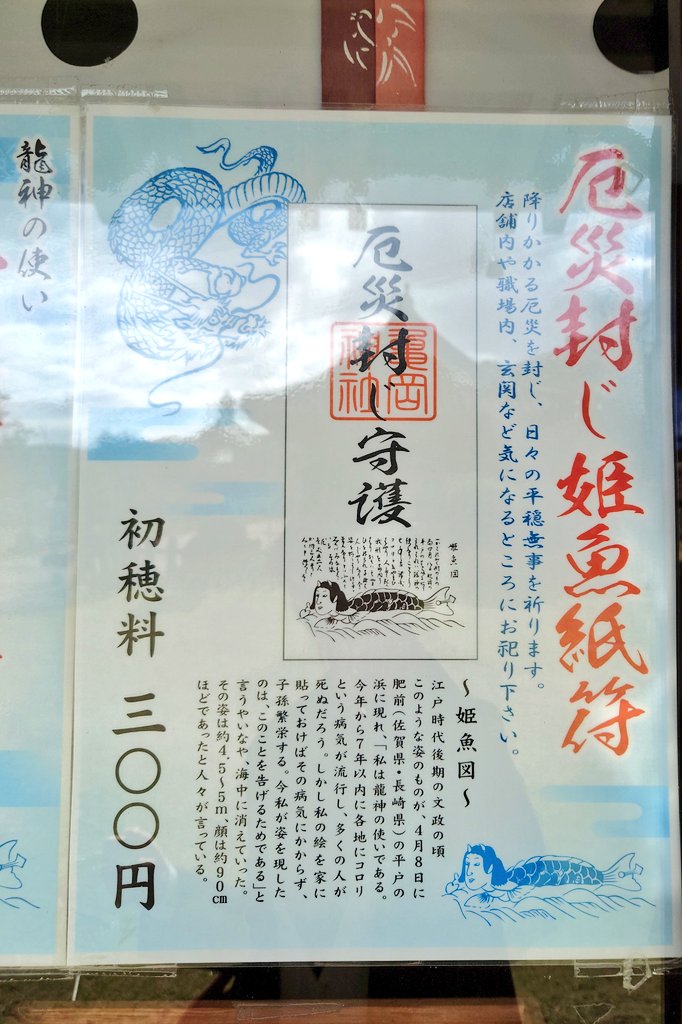 厄災封じ姫魚紙符
降りかかる厄災を封じ、日々の平穏無事を祈ります。
店舗内や職場内、玄関など気になるところにお祀り下さい。
厄災封じ守護
亀岡
神社
姫魚図
〜姫魚図〜
江戸時代後期の文政の頃
このような姿のものが、4月8日に
肥前（佐賀県・長崎県）の平戸の
浜に現れ、「私は龍神の使いである。
今年から7年以内に各地にコロリ
という病気が流行し、多くの人が
死ぬだろう。しかし私の絵を家に
貼っておけばその病気にかからず、
子孫繁栄する。今私が姿を現した
のは、このことを告げるためである」と
言うやいなや、海中に消えていった。
その姿は約4.5〜5m、顔は約90cm
ほどであったと人々が言っている。
初穂料 三〇〇円
龍神の使い